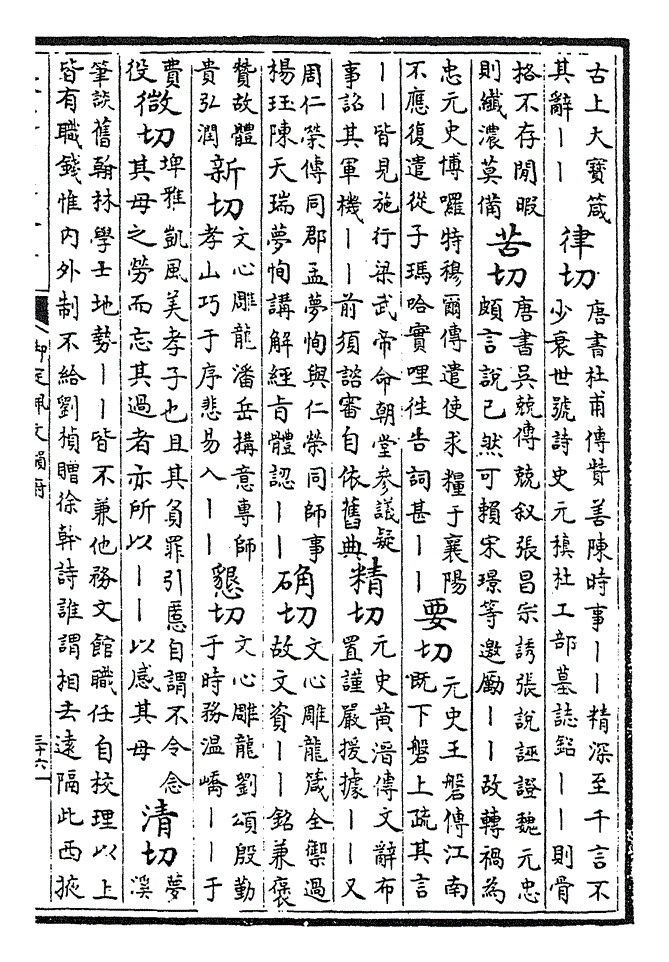 古上大寶箴
其辭丨丨
律切
唐書杜甫傳贊善陳時事丨丨精深至千言不
少衰世號詩史元稹杜工部墓誌銘丨丨則骨
格不存閒暇
則纖濃莫備
苦切
唐書吳兢傳兢叙張昌宗誘張說誣證魏元忠
頗言說已然可賴宋璟等邀勵丨丨故轉禍為
忠元史博囉特穆爾傳遣使求糧于襄陽
不應復遣從子瑪哈實哩徃告詞甚丨丨
要切
元史王磐傳江南
既下磐上疏其言
丨丨皆見施行梁武帝命朝堂參議疑
事詔其軍機丨丨前須諮審自依舊典
精切
元史黃溍傳文辭布
置謹嚴援據丨丨又
周仁榮傳同郡孟夢恂與仁榮同師事
楊珏陳天瑞夢恂講解經旨體認丨丨
确切
文心雕龍箴全禦過
故文資丨丨銘兼褒
贊故體
貴弘潤
新切
文心雕龍潘岳搆意專師
孝山巧于序悲易入丨丨
懇切
文心雕龍劉頌殷勤
于時務温嶠丨丨于
費
役
微切
埤雅凱風美孝子也且其負罪引慝自謂不令念
其母之勞而忘其過者亦所以丨丨以感其母
清切
夢
溪
筆談舊翰林學士地勢丨丨皆不兼他務文館職任自校理以上
皆有職錢惟内外制不給劉楨贈徐幹詩誰謂相去遠隔此西掖
御定佩文韻府
三十六